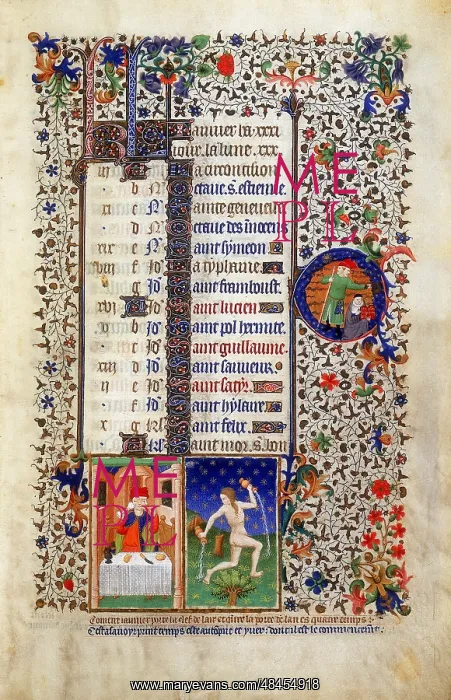 Januier ha .xxxi.
iours. la lune .xxx.
iii La circoncision
b N Octaue. s. estienne.
xi c N Sainte geneuieue
d N Octaue des inocens
xix e N Saint symeon
viii f Id La typhaine
g Id Saint frambourt.
xvi Id Saint lucien
b Id Saint pol hermite
c Id Saint guillaume.
xiii d Id Saint sauueur
ii e Id Saint satyr.
f Id Saint hylaire
x g Saint felix.
kl Saint mor. s. bon
ME
PL
ME
PL
Coment januier porte la clef de lan et euure la porte de lan es quatre temps
Cestassauoir printemps este autonpne et yuer dont il est le commencement.
www.maryevans.com/48454918